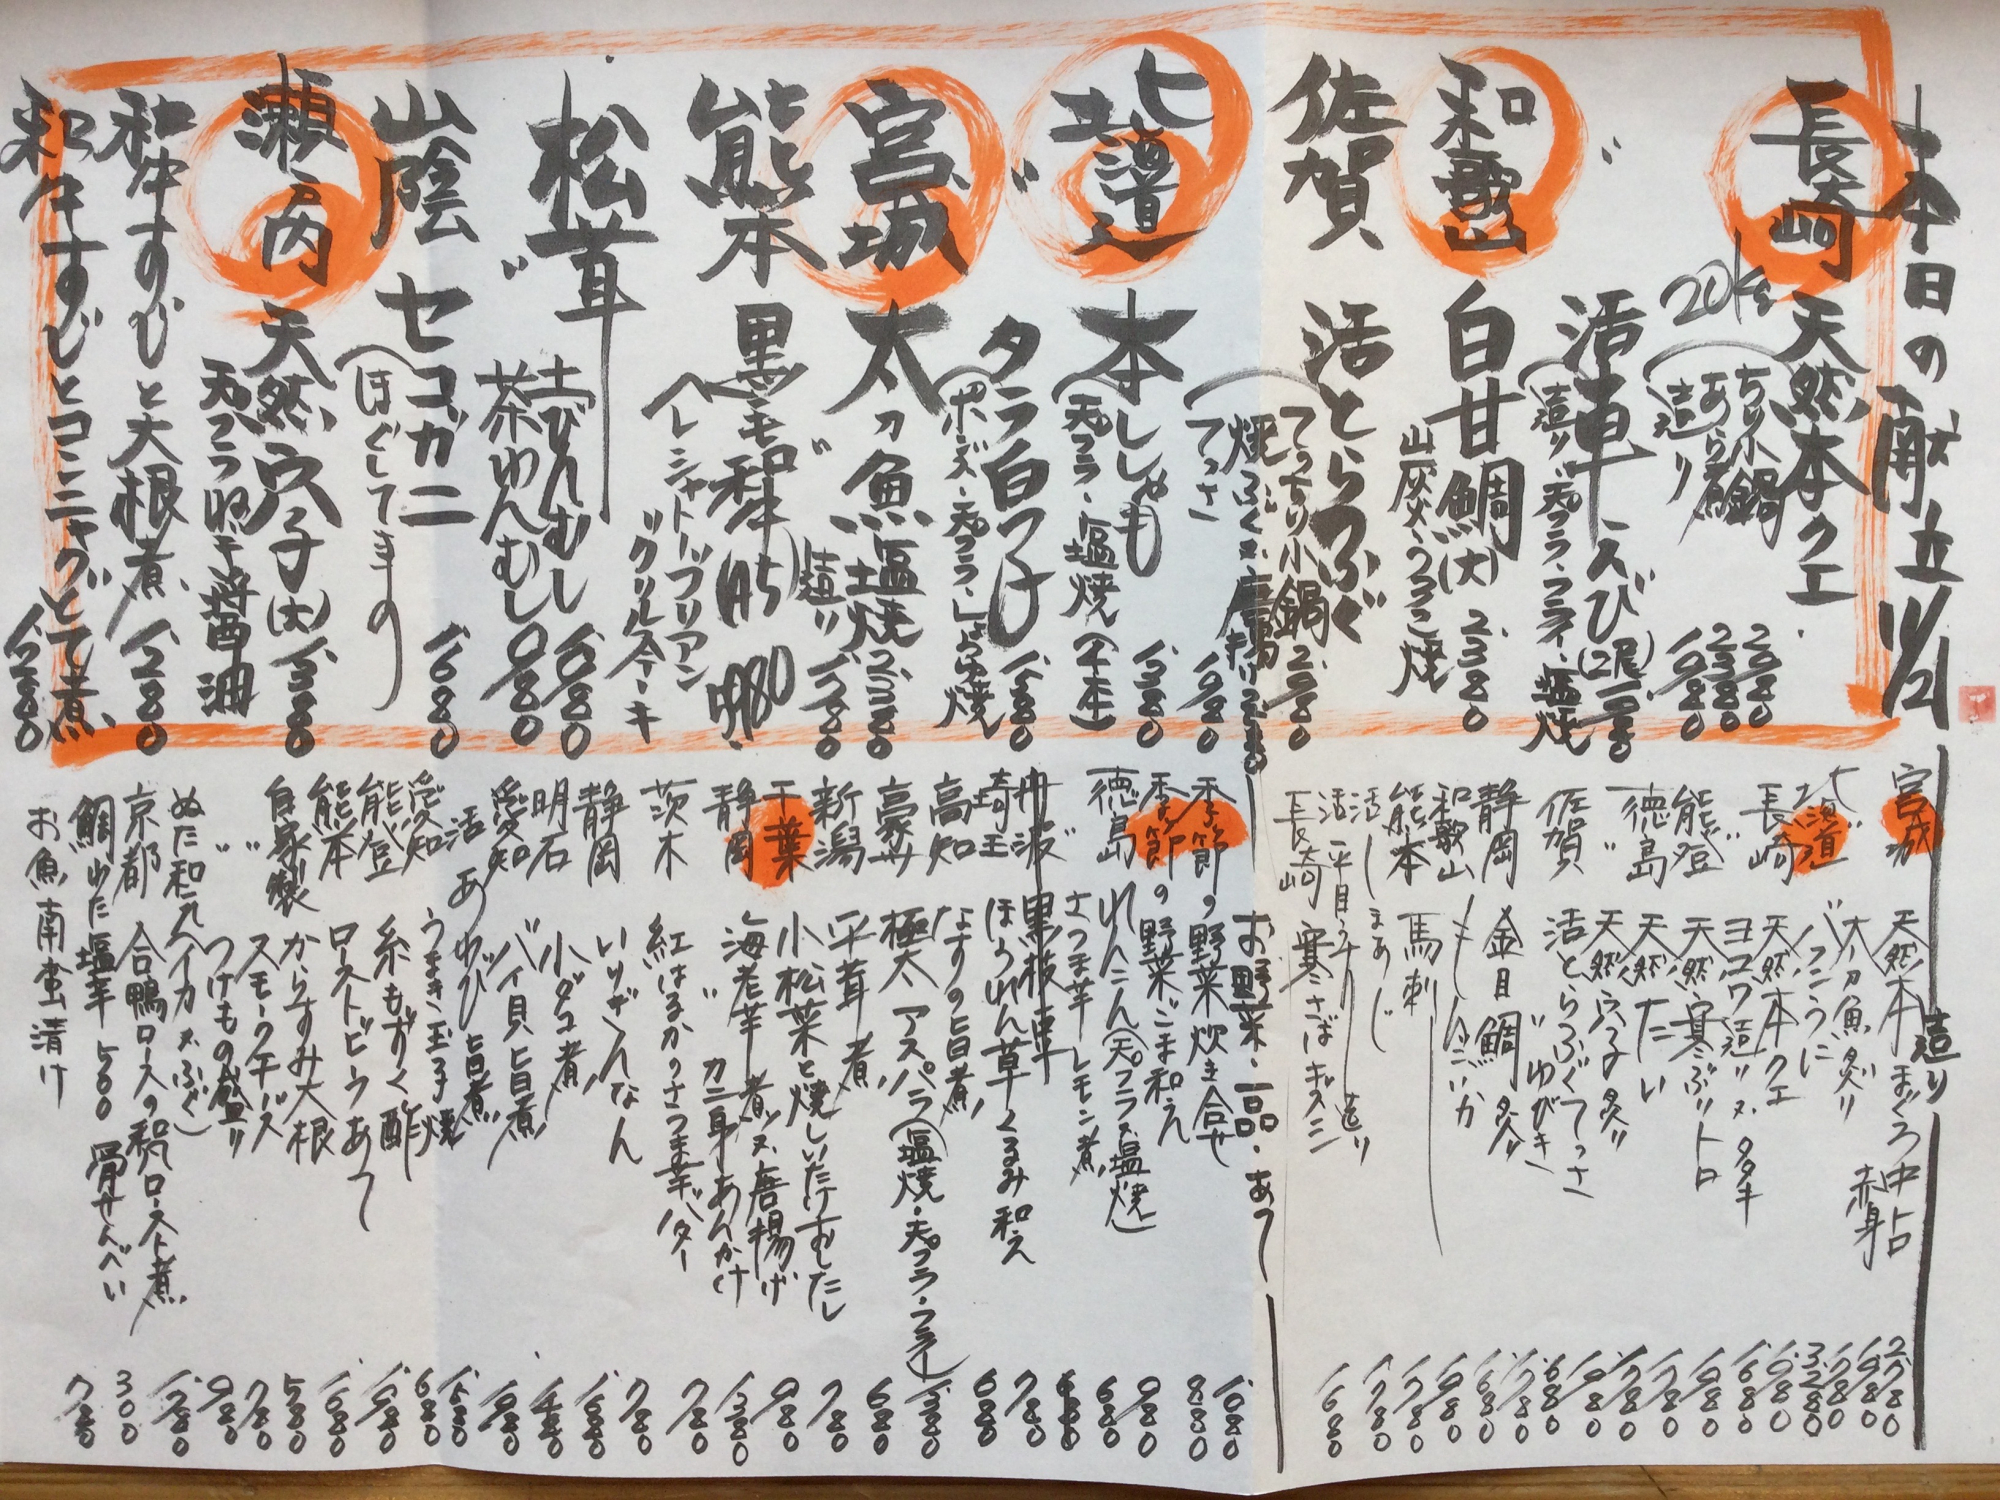 本日の献立 11/21
長崎 天然本クエ
ちり小鍋 2980
あら煮 2380
造り 1980
20Kg
〃 活車えび(2尾) 1680
(造り・天プラ・フライ・塩焼
和歌山 白甘鯛(大) 2380
山灰火・うろこ焼
佐賀 活とらふぐ
てっちり小鍋 2980
焼ふぐ又唐揚げ
てっさ 1980
北海道 本ししゃも 1380
(天プラ・塩焼 (4本)
〃 タラ白子 1680
(ポンズ・天プラ・しょうゆ焼
宮城 太刀魚塩焼 2380
〃 造り
熊本 黒毛和牛 1980
(シャトーブリアン
〃グリルステーキ
松茸 土びんむし 1680
〃 茶わんむし 980
山陰 セコガニ 1680
(ほぐしてきの)
瀬戸内 天然穴子(大) 1380
天プラ
和牛すじと大根煮 1280
和牛すじとコンニャクどて煮 1280
造り
宮城 天然本まぐろ 中トロ 2780
赤身 1980
〃 太刀魚炙り 1780
北海道 バフンうに 3280
長崎 天然本クエ 1980
〃 ヨコワ造り又タタキ 1680
能登 天然寒ぶりトロ 1980
徳島 天然たい 1780
〃 天然穴子炙り 1780
佐賀 活とらふぐてっさ 1980
〃 ゆびき 680
静岡 金目鯛炙り 1780
和歌山 もんごいか 1680
熊本 馬刺 1980
活しまあじ 1780
活平目うすり造り 1780
長崎 寒さばキズシ 1680
お野菜・一品・あて
季節の野菜炊き合せ 1080
季節の野菜ごま和え 880
徳島 れんこん(天プラ又塩焼) 980
さつま芋レモン煮 680
丹波 黒枝豆
埼玉 ほうれん草くるみ和え 780
高知 なすの旨煮 680
豪州 極太アスパラ(塩焼・天プラ・フライ) 1380
新潟 平茸煮 680
千葉 小松菜と焼しいたけおひたし 780
静岡 海老芋煮又唐揚げ 980
〃 カニ身あんかけ 1380
茨木 紅はるかのさつま芋バター 780
静岡 いりぎんなん 780
明石 小ダコ煮 1680
愛知 バイ貝旨煮
活あわび旨煮
愛知 うまき玉子焼 1580
能登 糸もずく酢 680
熊本 ローストビーフあて 1980
自家製 からすみ大根 1680
〃 スモークチーズ 580
つけもの盛り 780
ぬた和え(イカ又ふぐ) 980
京都 合鴨ロースの和ロースト煮 1280
鯛わた塩辛 500 骨せんべい 300
お魚南蛮漬け 780